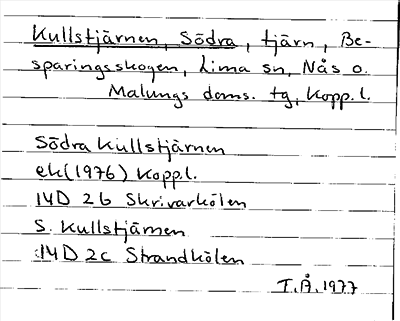 Kullstjärnen, Södra, tjärn, Be-
sparingsskogen, Lima sn, Nås o.
Malungs doms. tg, Kopp.l.
Södra Kullstjärnen
ek (1976) Kopp.l.
14D 2b Skrivarkölen
S. Kullstjärnen
14D 2c Strandkölen
T.Å. 1977